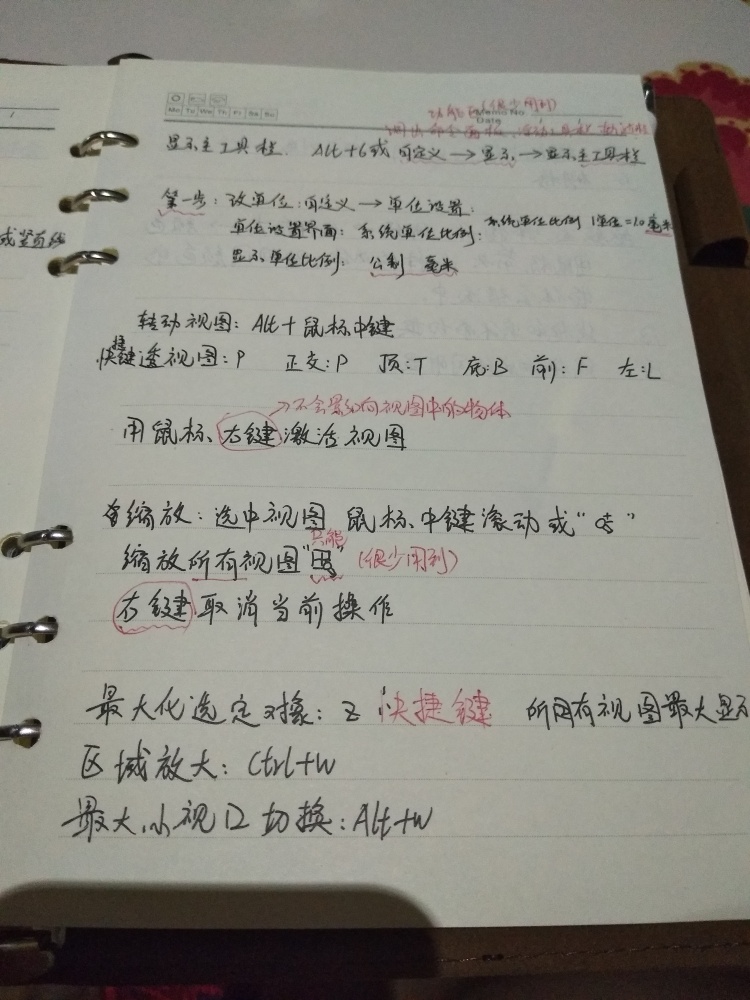 Mo Tu We Th Fr Sa Su
Memo No.
Date
功能区(很少用到)
显示主工具栏. Alt+6或 自定义→显示→显示主工具栏
第一步: 改单位:自定义→单位设置:
单位设置界面: 系统单位比例: 系统单位比例 1单位=1.0毫米
显示单位比例: 公制 毫米
成竖直线
转动视图: Alt+鼠标中键
快捷键透视图:P 正交:P 顶:T 底:B 前:F 左:L
→不会影响视图中的物体
用鼠标右键激活视图
缩放: 选中视图 鼠标中键滚动或“ ”
只能
缩放所有视图“ ” (很少用到)
右键取消当前操作
最大化选定对象: Z 快捷键 所有视图最大显示
区域放大: Ctrl+W
最大小视口切换: Alt+W